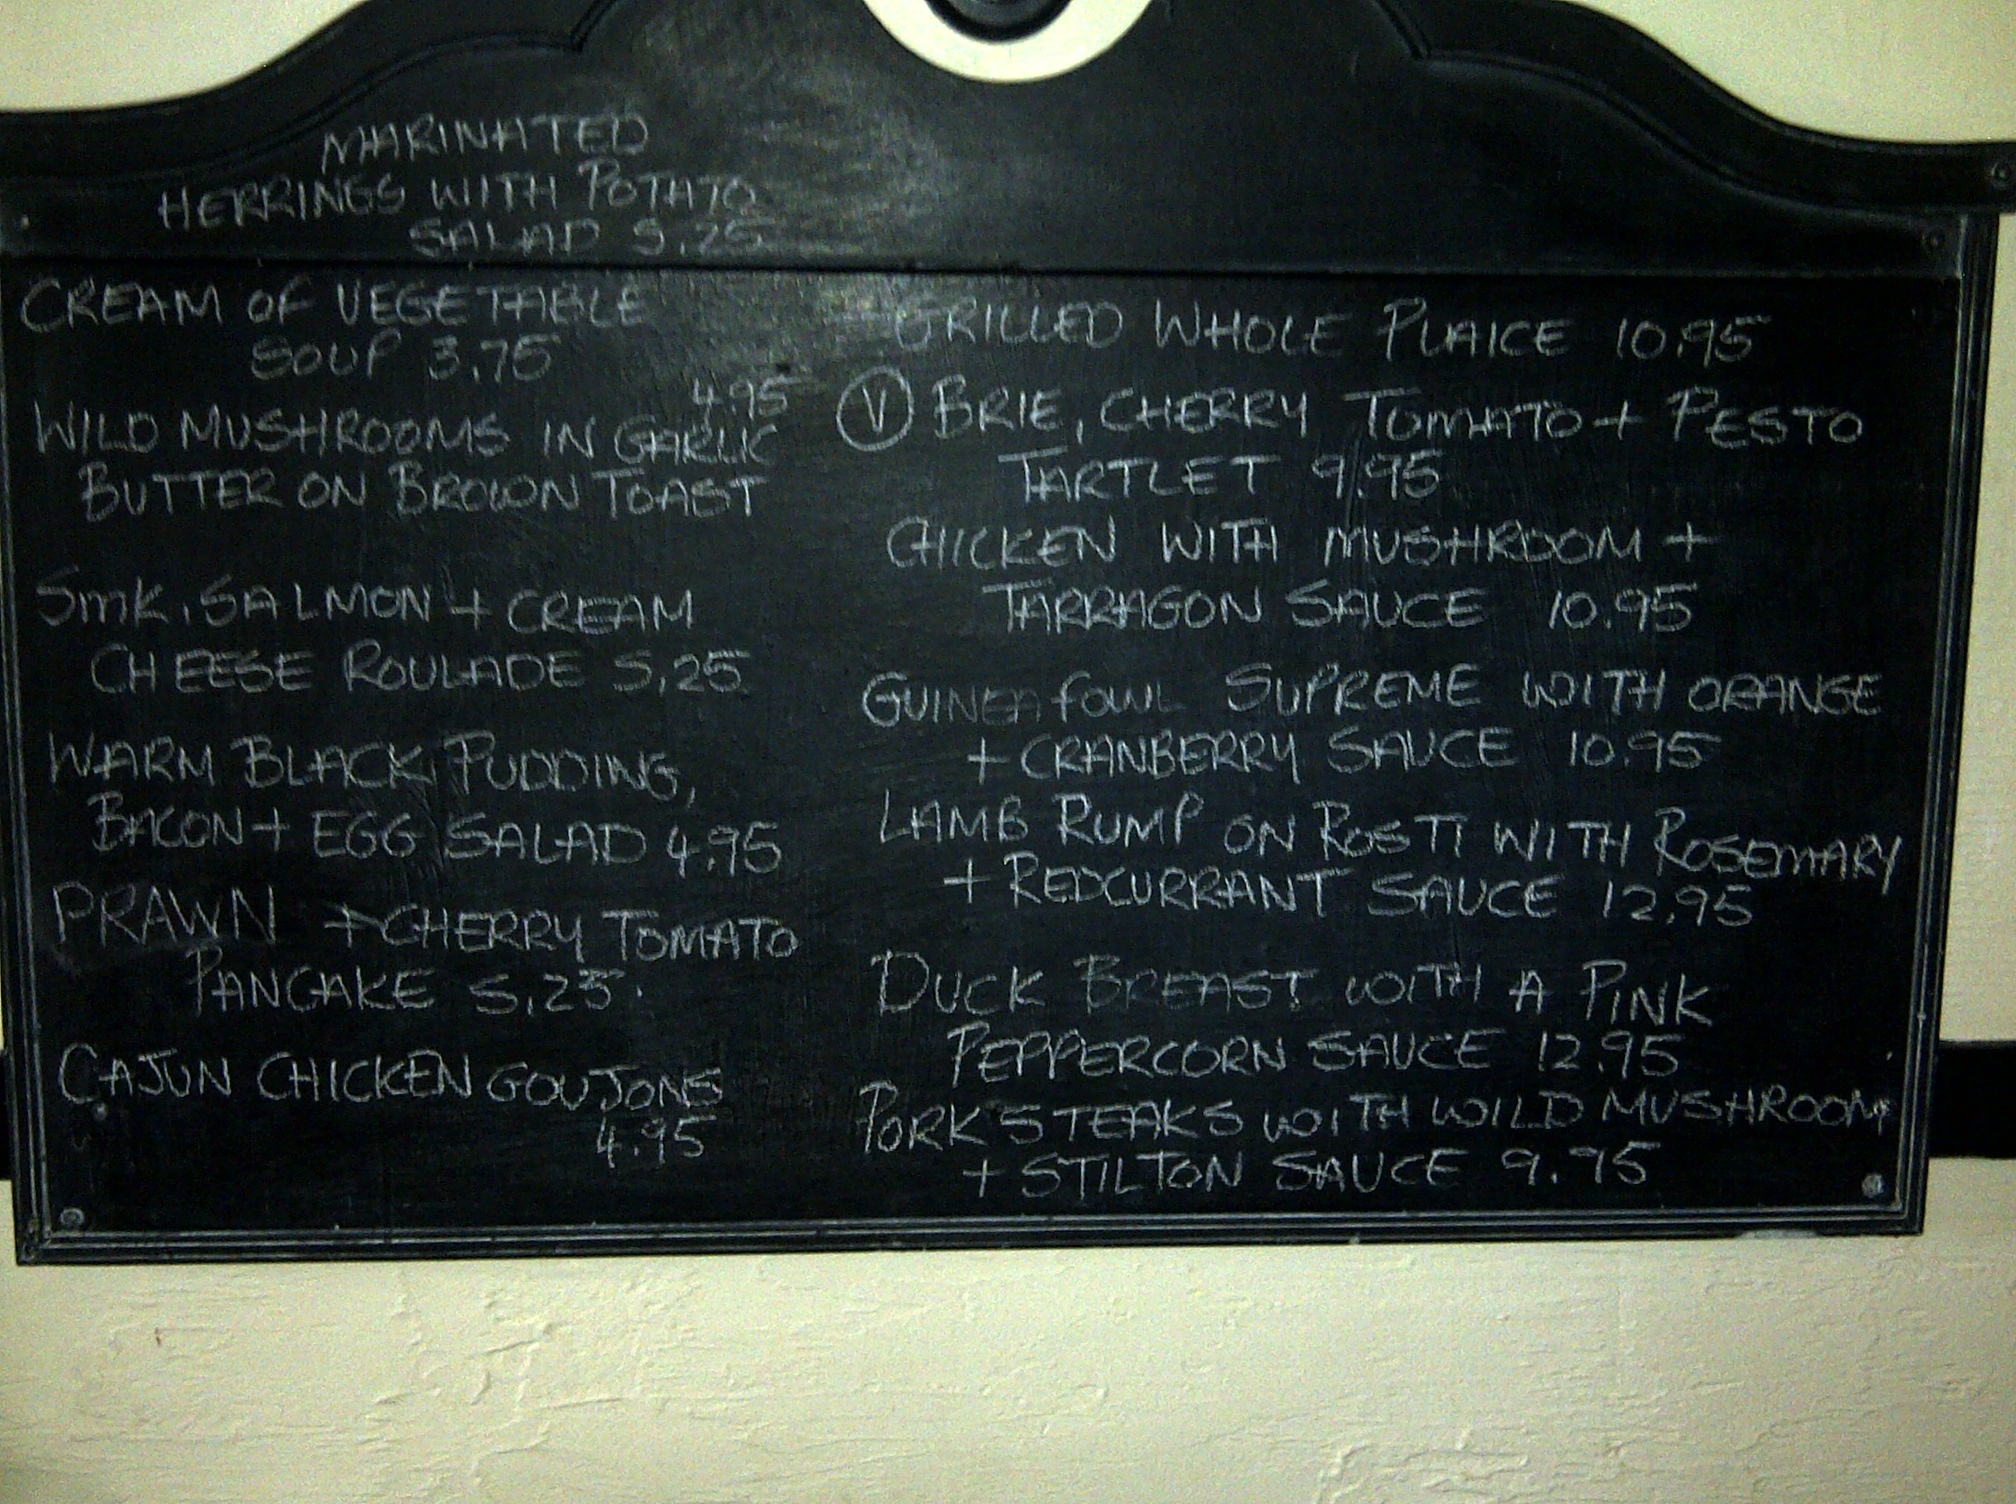 MARINATED
HERRINGS WITH POTATO
SALAD 5.25
CREAM OF VEGETABLE
SOUP 3.75
4.95
WILD MUSHROOMS IN GARLIC
BUTTER ON BROWN TOAST
SMK. SALMON + CREAM
CHEESE ROULADE 5.25
WARM BLACK PUDDING,
BACON + EGG SALAD 4.95
PRAWN + CHERRY TOMATO
PANCAKE 5.25.
CAJUN CHICKEN GOUJONS
4.95
GRILLED WHOLE PLAICE 10.95
V BRIE, CHERRY TOMATO + PESTO
TARTLET 9.95
CHICKEN WITH MUSHROOM +
TARRAGON SAUCE 10.95
GUINEA FOWL SUPREME WITH ORANGE
+ CRANBERRY SAUCE 10.95
LAMB RUMP ON ROSTI WITH ROSEMARY
+ REDCURRANT SAUCE 12.95
DUCK BREAST WITH A PINK
PEPPERCORN SAUCE 12.95
PORK STEAKS WITH WILD MUSHROOM
+ STILTON SAUCE 9.75